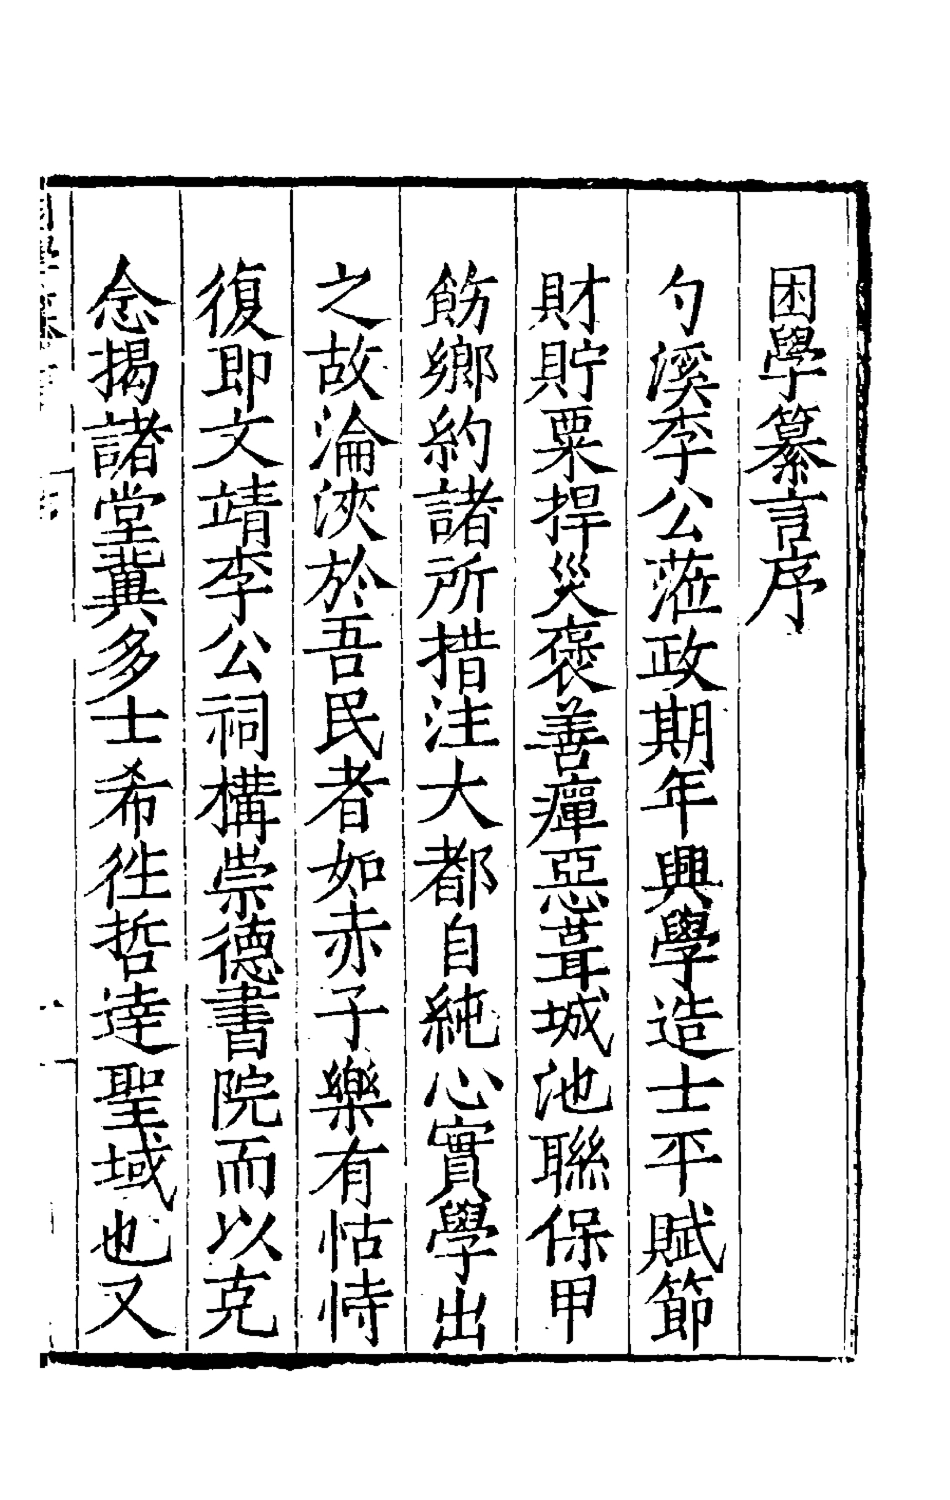 困學纂言序
勺溪李公蒞政期年興學造士平賦節
財貯粟捍災褒善癉惡葺城池聯保甲
飭鄉約諸所措注大都自純心實學出
之故淪浹於吾民者如赤子樂有怙恃
復即文靖李公祠構崇德書院而以克
念揭諸堂冀多士希徃哲逹聖域也又